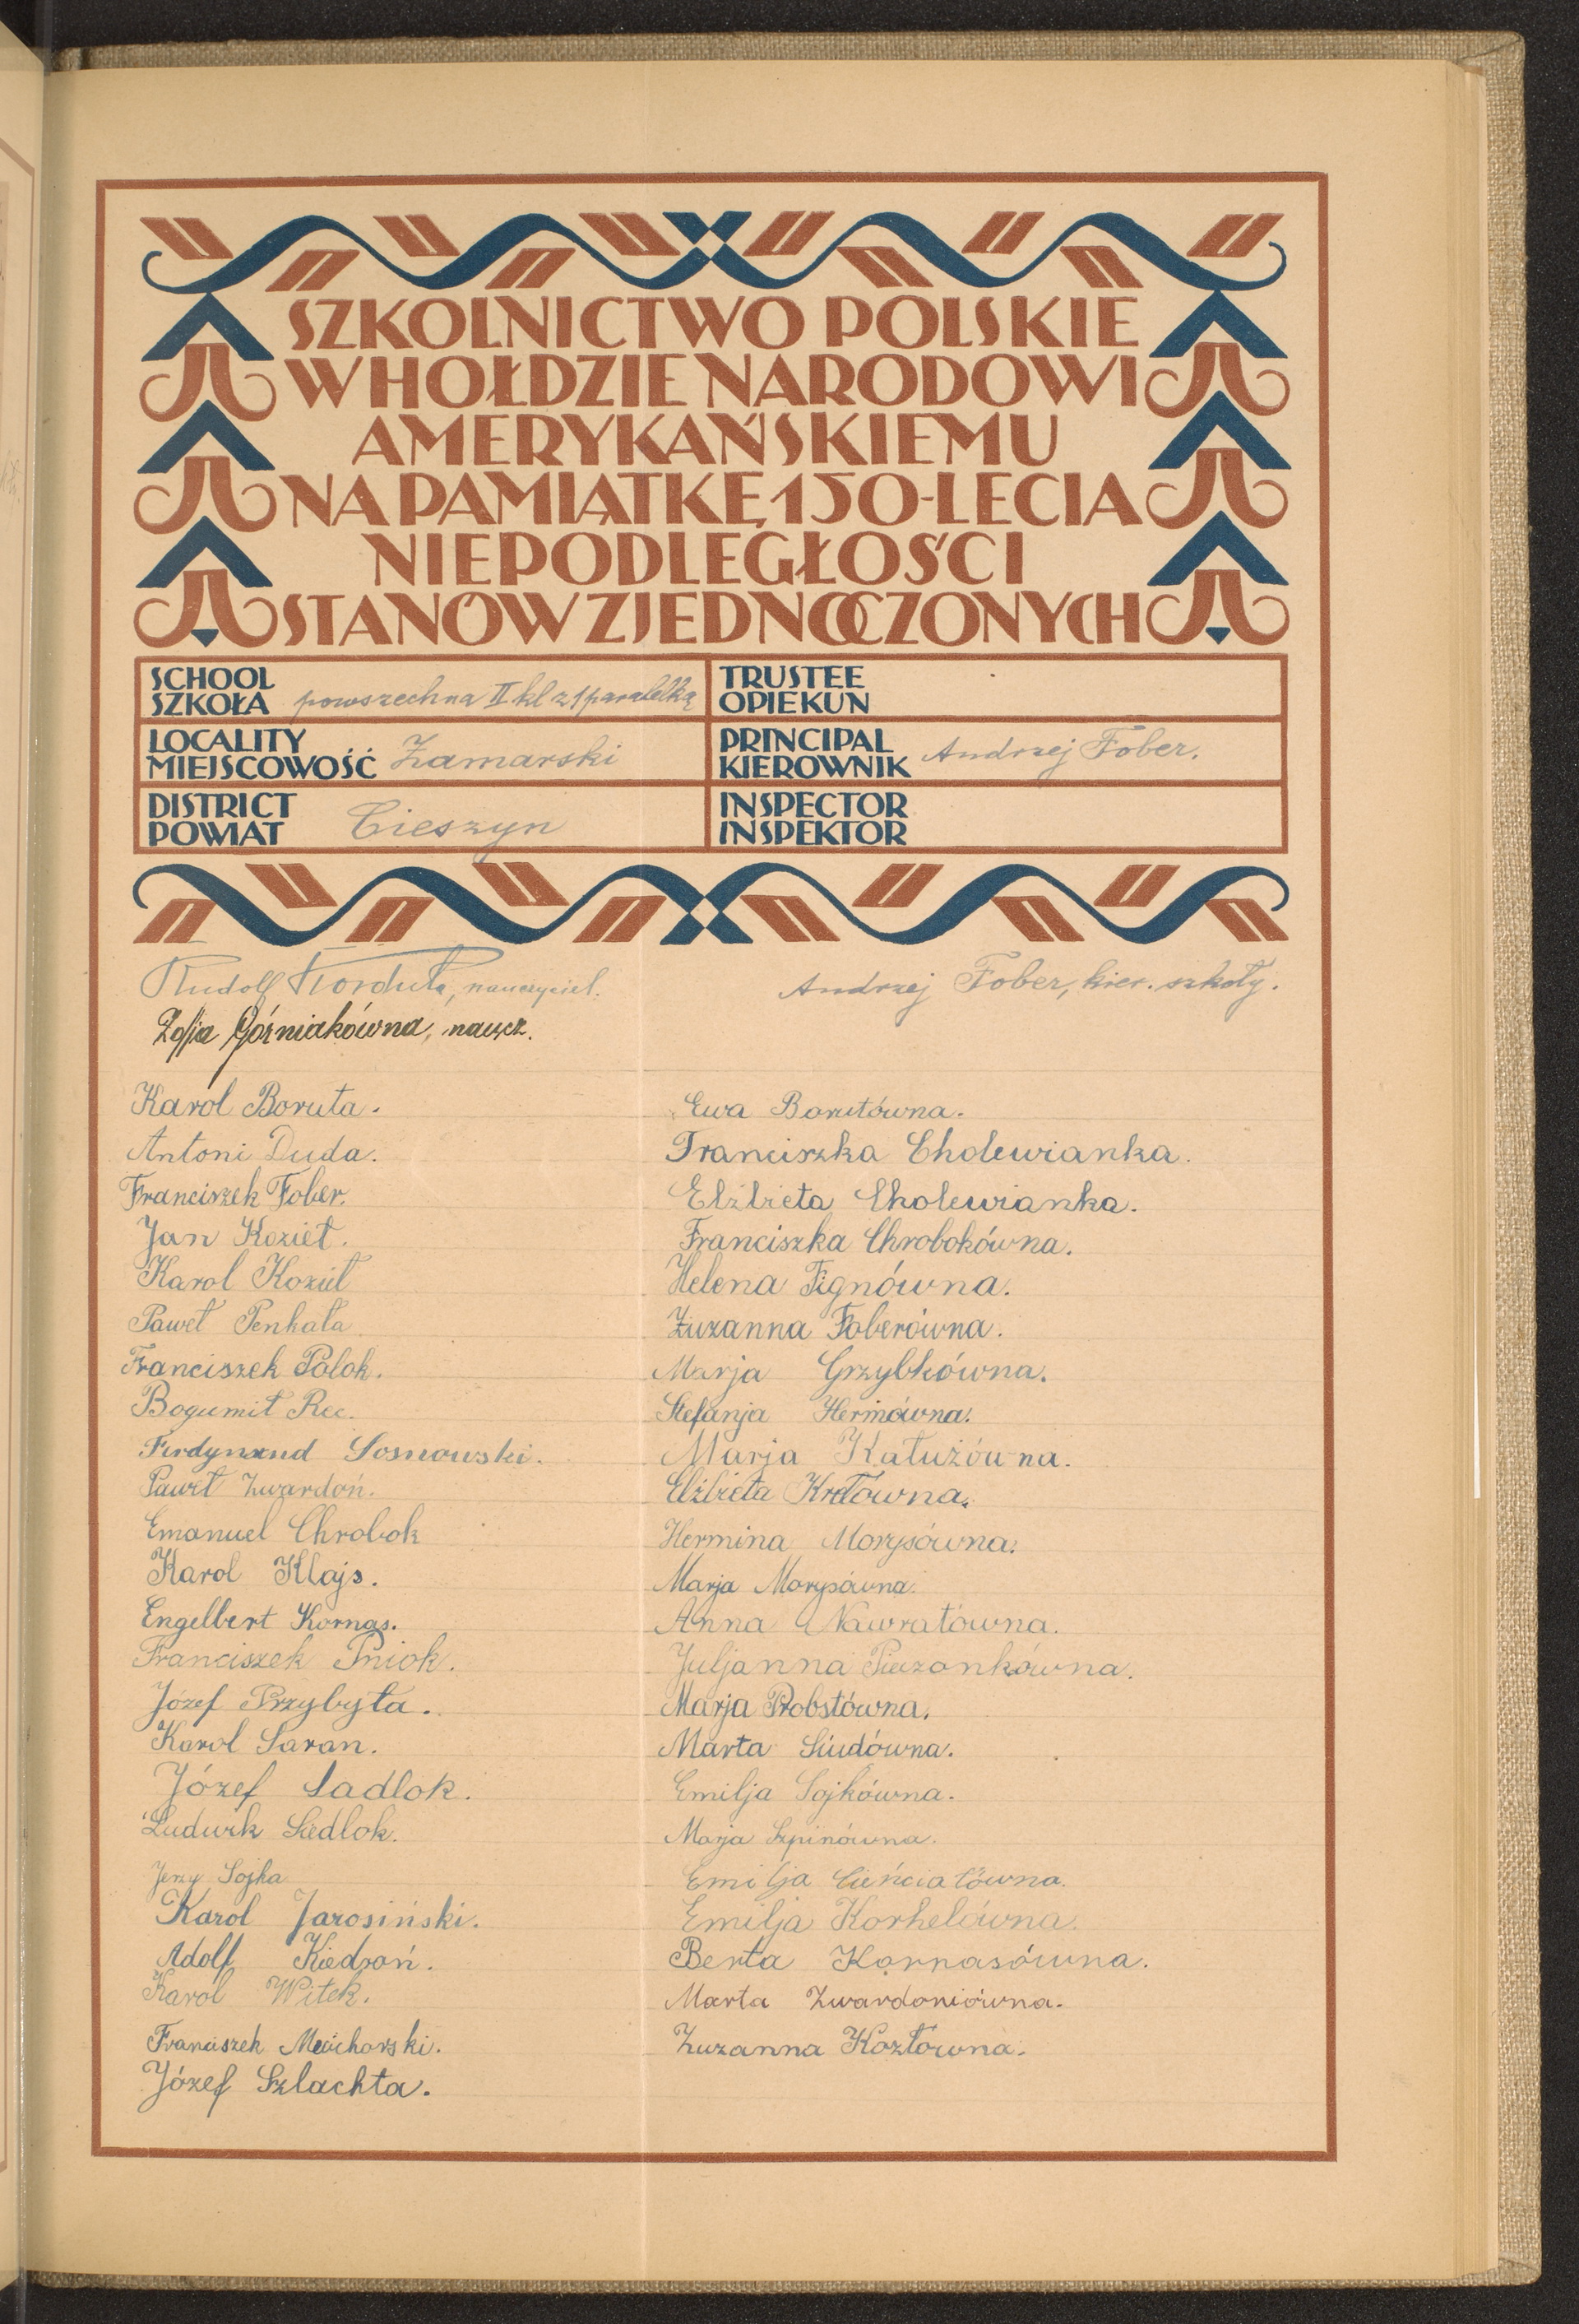 SZKOLNICTWO POLSKIE
W HOŁDZIE NARODOWI
AMERYKAŃSKIEMU
NA PAMIĄTKĘ 150-LECIA
NIEPODLEGŁOŚCI
STANÓW ZJEDNOCZONYCH
SCHOOL
SZKOŁA powszechna II kl z 1 paralelką
TRUSTEE
OPIEKUN
LOCALITY
MIEJSCOWOŚĆ Zamarski
PRINCIPAL
KIEROWNIK Andrzej Fober.
DISTRICT
POWIAT Cieszyn
INSPECTOR
INSPEKTOR
Rudolf Korduła, nauczyciel.
Zofja Górniakówna, naucz.
Andrzej Fober, kier. szkoły.
Karol Boruta.
Antoni Duda.
Franciszek Fober.
Jan Kozieł.
Karol Kozieł
Paweł Penkała
Franciszek Polok.
Bogumił Rec.
Ferdynand Sosnowski.
Paweł Zwardoń.
Emanuel Chrobok
Karol Klajs.
Engelbert Kornas.
Franciszek Pniok.
Józef Przybyła.
Karol Saran.
Józef Sadlok.
Ludwik Siedlok.
Jerzy Sojka
Karol Jarosiński.
Adolf Kiedroń.
Karol Witek.
Franciszek
Józef Szlachta.
Ewa Borutówna.
Franciszka Cholewianka.
Elżbieta Cholewianka.
Franciszka Chrobokówna.
Helena Fignówna.
Zuzanna Foberówna.
Marja Grzybkówna.
Stefanja Hermówna.
Marja Kałużówna.
Elżbieta Królówna.
Hermina Morysówna.
Marja Morysówna.
Anna Nawratówna.
Juljanna
Marja Probstówna.
Marta Siudówna.
Emilja Sojkówna.
Marja Szpinówna.
Emilja Cieńciałówna.
Emilja Korhelówna.
Berta Kornasówna.
Marta Zwardoniówna.
Zuzanna Kozłówna.